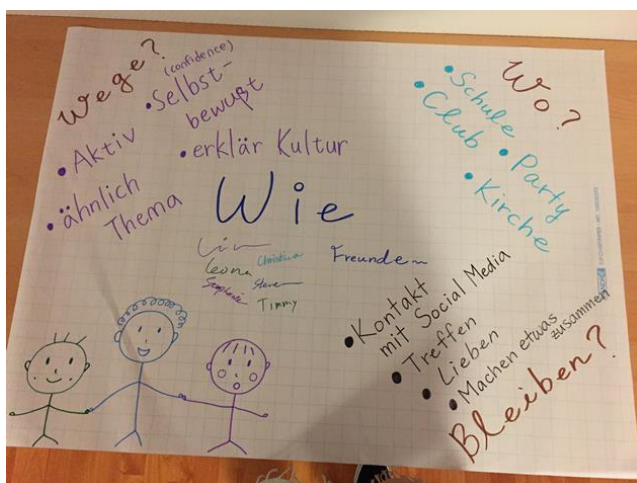 Wege?
(confidence)
• Selbst-
bewußt
• Aktiv
• erklär Kultur
• ähnlich
Thema
Wo?
• Schule
• Club
• Party
• Kirche
Wie
Christina
Leona
Stephanie
Steve
Timmy
Freunde
• Kontakt
mit Social Media
• Treffen
• Lieben
• Machen etwas
zusammen
Bleiben?